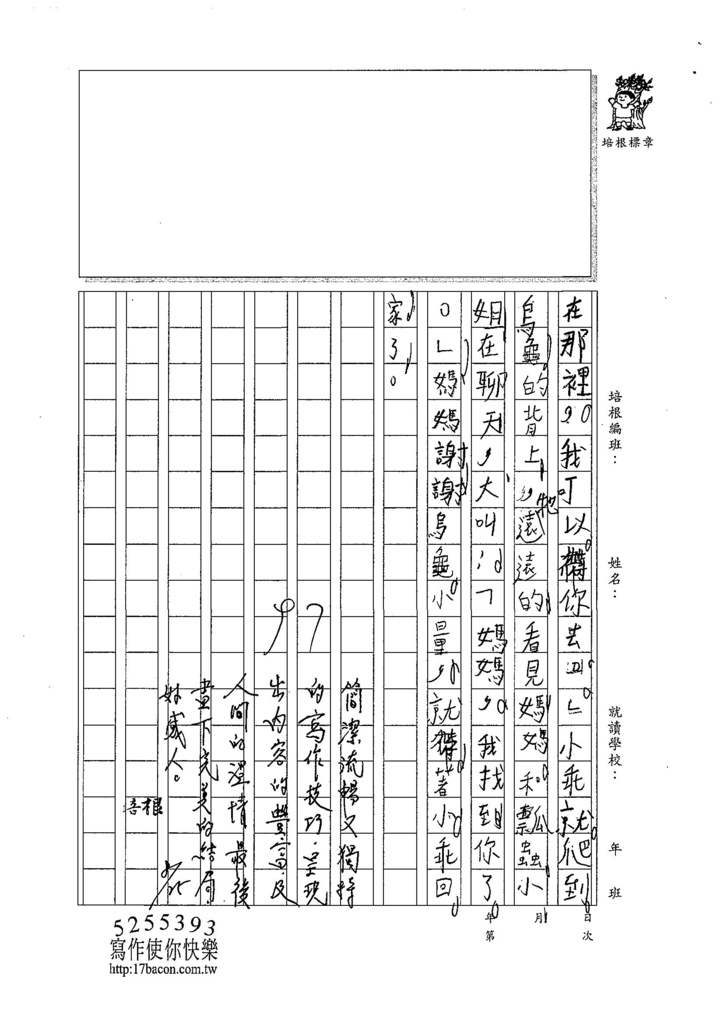 培根標章
培根編班：
姓名：
就讀學校：
年　班
日　次
月
年　第
在那裡，我可以帶你去。」小乖就爬到
烏龜的背上，牠遠遠的看見媽媽和瓢蟲小
姐在聊天，大叫：「媽媽，我找到你了
。」媽媽謝謝烏龜小量，就帶著小乖回
家了。
97
簡潔流暢又獨特
的寫作技巧，呈現
出內容的豐富及
人間的溫情，最後
畫下完美的結局，
好感人。
培根
5255393
寫作使你快樂
http:17bacon.com.tw